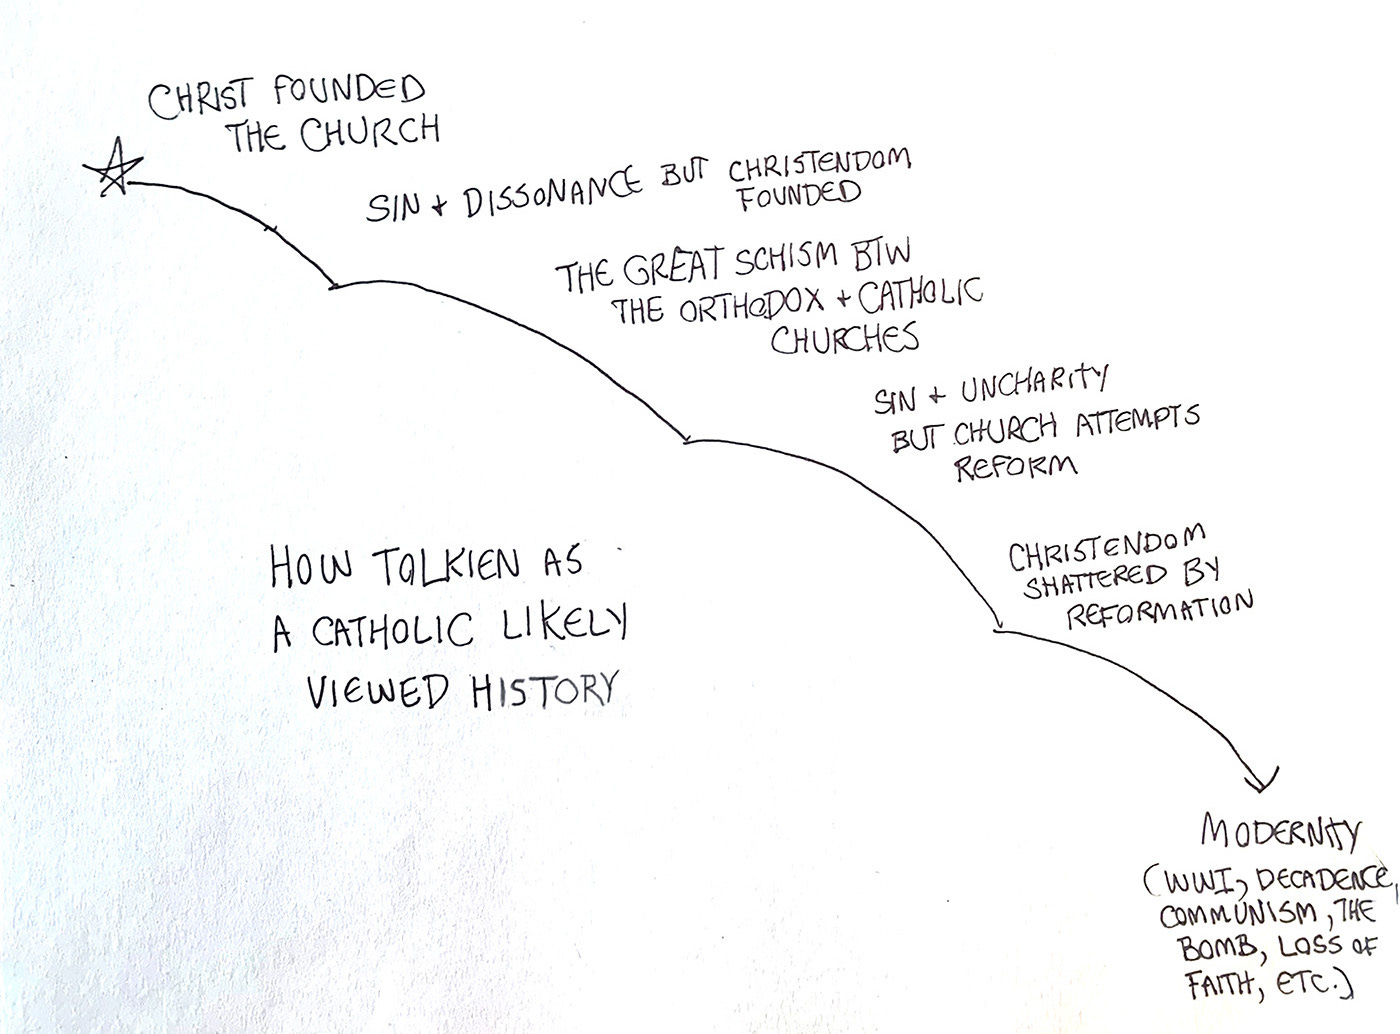 CHRIST FOUNDED
THE CHURCH
SIN + DISSONANCE BUT CHRISTENDOM
FOUNDED
THE GREAT SCHISM BTW
THE ORTHODOX + CATHOLIC
CHURCHES
SIN + UNCHARITY
BUT CHURCH ATTEMPTS
REFORM
CHRISTENDOM
SHATTERED BY
REFORMATION
HOW TOLKIEN AS
A CATHOLIC LIKELY
VIEWED HISTORY
MODERNITY
(WWI, DECADENCE,
COMMUNISM, THE
BOMB, LOSS OF
FAITH, ETC.)